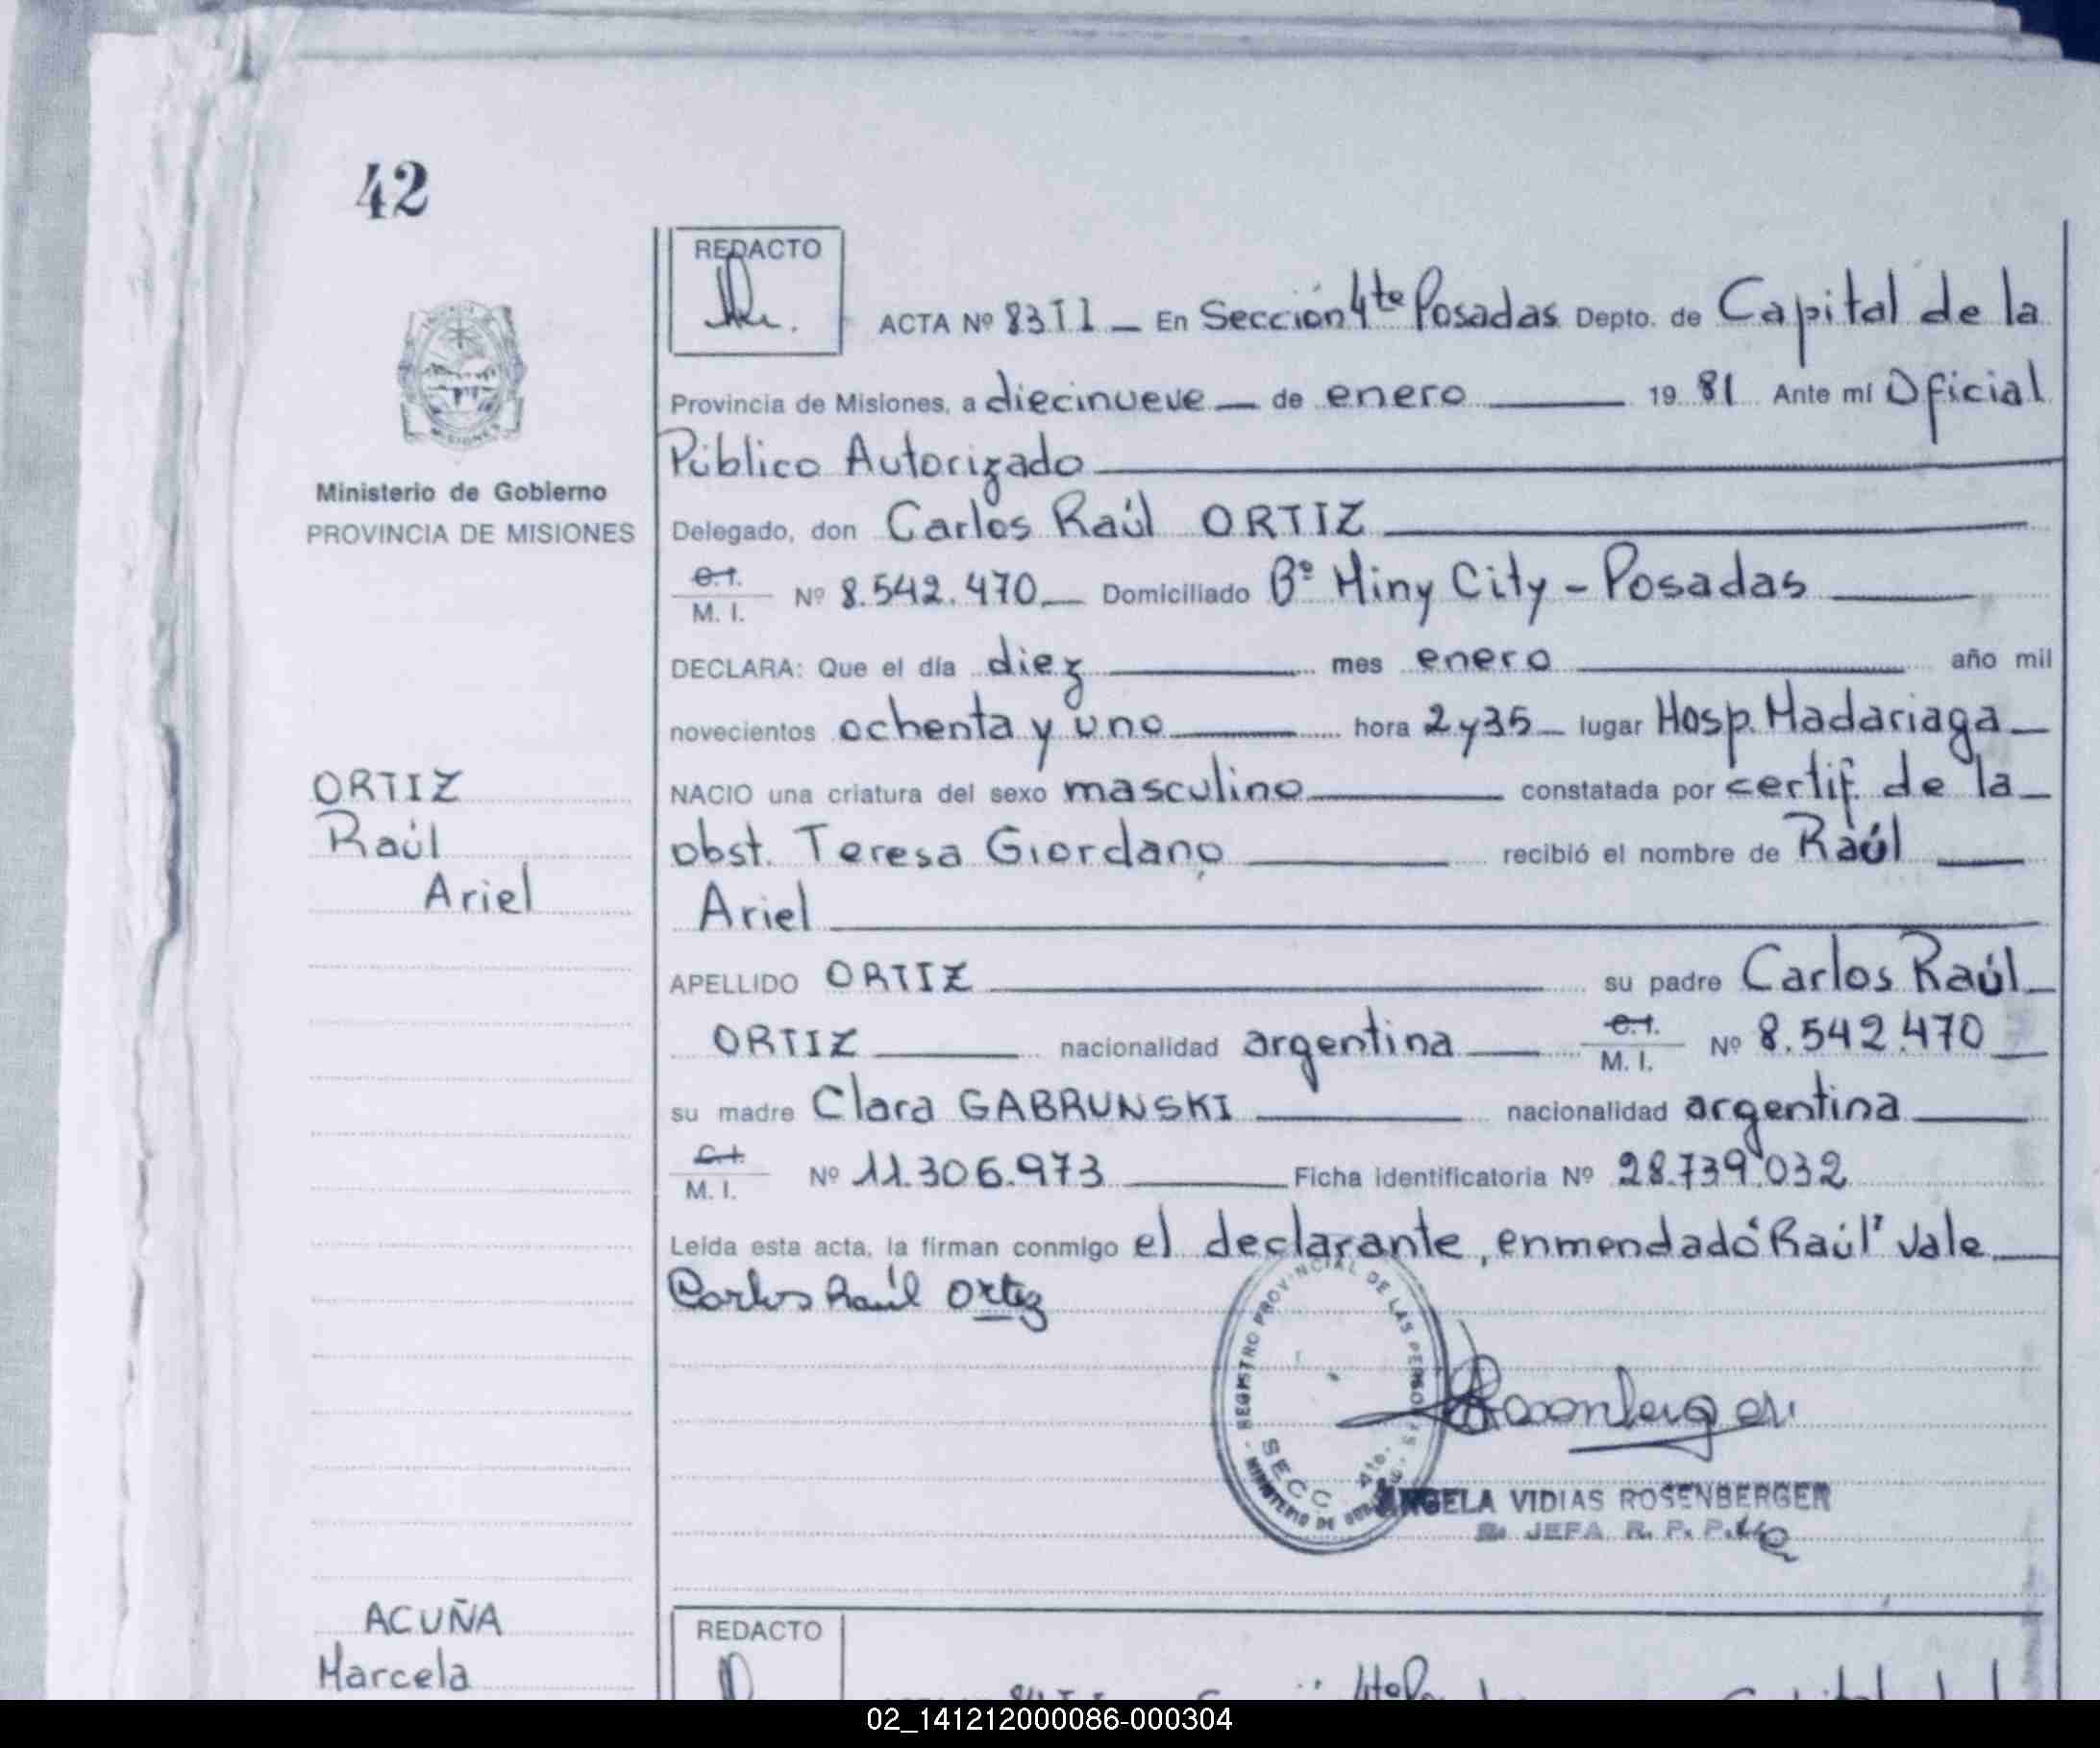 42
REDACTO
ACTA Nº 83 T I - En Sección 4ta Posadas Depto. de Capital de la
Provincia de Misiones, a diecinueve de enero 19 81 Ante mí Oficial
Público Autorizado
Ministerio de Gobierno
PROVINCIA DE MISIONES
Delegado, don Carlos Raúl ORTIZ
C.I.
M. I. Nº 8.542.470 Domiciliado Bº Miny City - Posadas
DECLARA: Que el día diez mes enero año mil
novecientos ochenta y uno hora 2 y 35 lugar Hosp. Madariaga
ORTIZ
Raúl
Ariel
NACIO una criatura del sexo masculino constatada por certif. de la
obst. Teresa Giordano recibió el nombre de Raúl
Ariel
APELLIDO ORTIZ su padre Carlos Raúl
ORTIZ nacionalidad argentina C.I.
M. I. Nº 8.542.470
su madre Clara GABRUNSKI nacionalidad argentina
C.I.
M. I. Nº 11.306.973 Ficha identificatoria Nº 28.739.032
Leída esta acta, la firman conmigo el declarante, enmendado "Raúl" Vale
Carlos Raúl Ortiz
REGISTRO PROVINCIAL DE LAS PERSONAS
SECC. 4ta.
MINISTERIO DE
Rosenberger
ANGELA VIDIAS ROSENBERGER
JEFA R. P. P.
ACUÑA
Marcela
REDACTO
02_141212000086-000304